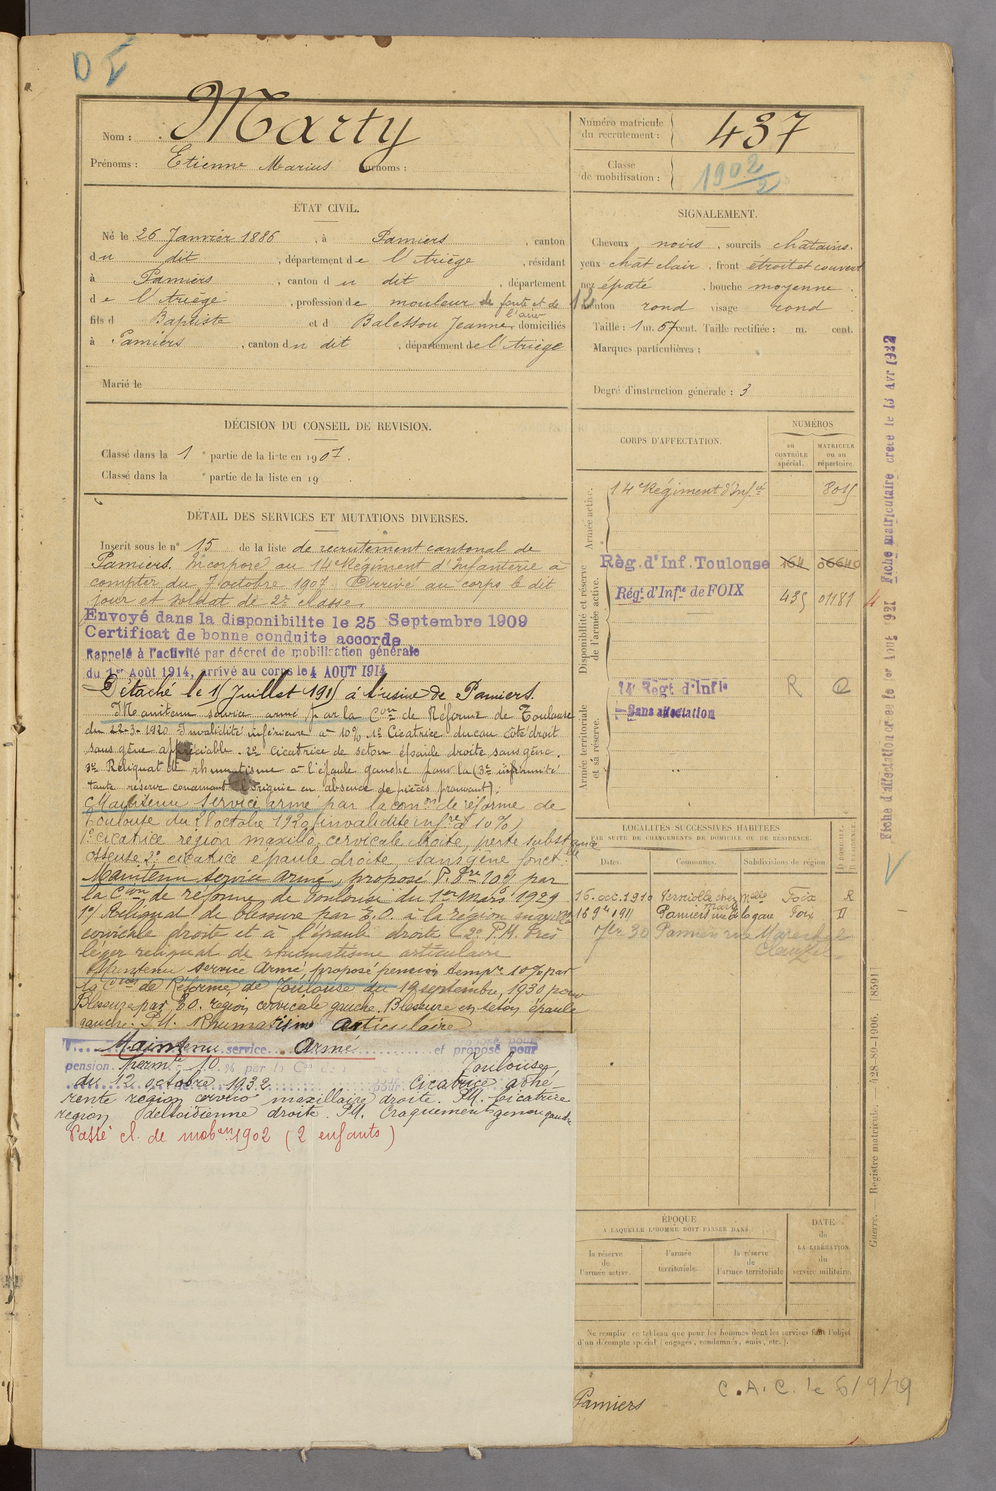 Nom : Marty
Prénoms : Etienne Marius Surnoms :
Numéro matricule du recrutement : 437
Classe de mobilisation : 1902
ÉTAT CIVIL.
Né le 26 Janvier 1886, à Pamiers, canton
du dit, département de l'Ariège, résidant
à Pamiers, canton du dit, département
de l'Ariège, profession de mouleur de fonte et de l'acier
fils de Baptiste et de Balessou Jeanne, domiciliés
à Pamiers, canton du dit, département de l'Ariège
Marié le
SIGNALEMENT.
Cheveux noirs, sourcils chatains.
yeux chat clair, front étroit et couvert
nez épaté, bouche moyenne
menton rond visage rond
Taille : 1 m. 67 cent. Taille rectifiée : m. cent.
Marques particulières :
Degré d'instruction générale : 3
DÉCISION DU CONSEIL DE REVISION.
Classé dans la 1e partie de la liste en 1907.
Classé dans la e partie de la liste en 19
DÉTAIL DES SERVICES ET MUTATIONS DIVERSES.
Inscrit sous le n° 15 de la liste de recrutement cantonal de
Pamiers. Incorporé au 14e Régiment d'Infanterie à
compter du 7 octobre 1907. Arrivé au corps le dit
jour et soldat de 2e classe.
Envoyé dans la disponibilite le 25 Septembre 1909
Certificat de bonne conduite accorde
Rappelé à l'activité par décret de mobilisation générale
du 1er Août 1914, arrivé au corps le 4 AOUT 1914
Détaché le 15 Juillet 1915 à l'usine de Pamiers.
Maintenu service armé par la Con de Réforme de Toulouse
du 22-3-1920 Invalidité inférieure à 10% 1e Cicatrice du cou côté droit
sans gêne appréciable. 2e Cicatrice de seton épaule droite sans gêne.
3e Reliquat de rhumatisme à l'épaule gauche pour la (3e infirmité
toute reserve concernant l'origine en absence de pièces prouvant).
Maintenu service armé par la con on de réforme de
Toulouse du 21 octobre 1920 (invalidité infre à 10%)
1e cicatrice région maxillo cervicale droite, perte substance
osseuse 2e cicatrice épaule droite, sans gêne fonctlle
Maintenu service armé, proposé P. Pre 10% par
la Con de réforme de Toulouse du 1er Mars 1929
1e Reliquat de blessure par E.O. à la région maxillo
cervicale droite et à l'épaule droite 2e P.M. très
léger reliquat de rhumatisme articulaire
Maintenu service armé, proposé pension tempre 10% par
la Con de Réforme de Toulouse du 19 septembre 1930 pour
Blessure par E.O. région cervicale gauche. Blessure en seton épaule
gauche. P.M. Rhumatisme articulaire
Maintenu service Armé et proposé pour
pension permte 10 % par la C Toulouse
du 12 octobre 1932 pour Cicatrice adhé
rente region cervico maxillaire droite. P.M. Cicatrice
region deltoïdienne droite. P.M. Craquements genou gauche
Passé cl. de mobon 1902 (2 enfants)
CORPS D'AFFECTATION.
NUMÉROS
au CONTRÔLE spécial.
MATRICULE ou au répertoire.
Armée active.
14e Régiment d'Infie 8015
Disponibilité et réserve de l'armée active.
Règ. d'Inf. Toulouse 164 06640
Régt. d'Infie de FOIX 435 01181
Armée territoriale et sa réserve.
14e Regt d'Infie R
Sans affectation
LOCALITÉS SUCCESSIVES HABITÉES
PAR SUITE DE CHANGEMENTS DE DOMICILE OU DE RÉSIDENCE.
Dates. Communes. Subdivisions de région
D DOMICILE. R RÉSIDENCE.
15 oct. 1910 Verniolle Foix R
Pamiers rue de la gare Foix D
30 Pamiers rue Maréchal
Clauzel
ÉPOQUE
A LAQUELLE L'HOMME DOIT PASSER DANS
la réserve de l'armée active
l'armée territoriale.
la réserve de l'armée territoriale
DATE de LA LIBÉRATION du service militaire.
Ne remplir ce tableau que pour les hommes dont les services font l'objet
d'un décompte spécial (engagés, condamnés, omis, etc.).
Pamiers
C.A.C. le 6/9/29
Fiche matriculaire créée le 13 Avr 1932
Guerre. — Registre matricule. — 428-89-1906. [8591]